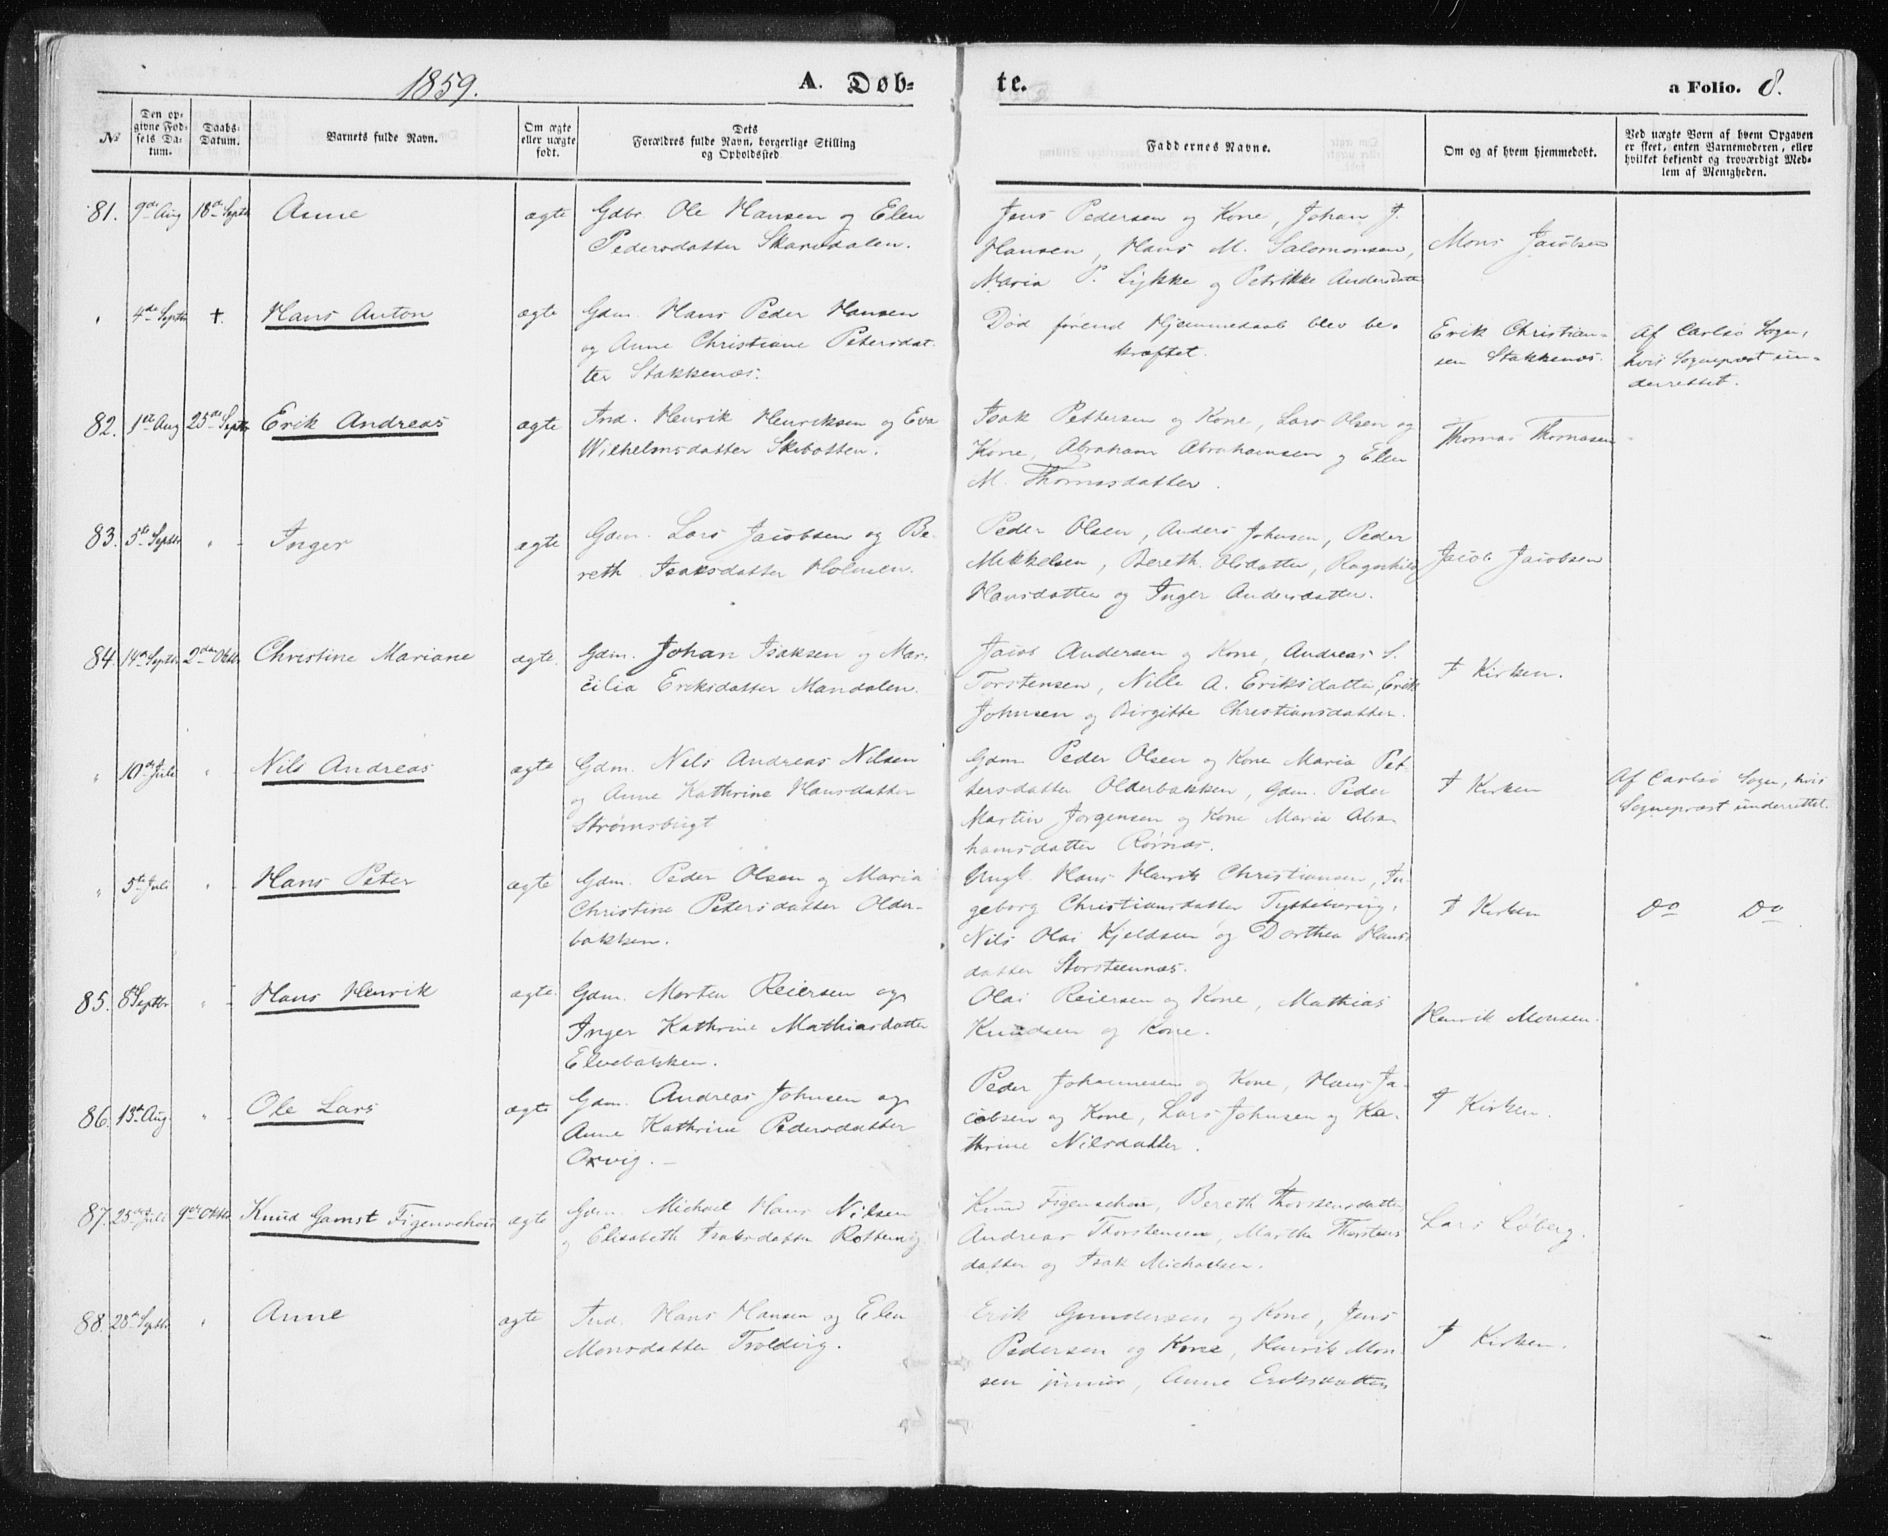 1859. A. Døb= te. a Folio. 8.
№
Den op-
givne Fød-
sels Da-
tum.
Daabs-
Datum.
Barnets fulde Navn.
Om ægte
eller uægte
født.
Dets
Forældres fulde Navn, borgerlige Stilling
og Opholdssted.
Faddernes Navne.
Om og af hvem hjemmedøbt.
Ved uægte Børn af hvem Opgaven
er skeet, enten Barnemoderen, eller
hvilket bekjendt og troværdigt Med-
lem af Menigheden.
81. 9de Aug 18de Septb Anne ægte
Gdbr. Ole Hansen og Elen
Pedersdatter Skardalen.
Jens Pedersen og Kone, Johan J.
Hansen, Hans M. Salomonsen,
Maria P. Lykke og Petrikke Andersdatter
Mons Jacobsen
" 4de Septbr † Hans Anton ægte
Gdm. Hans Peder Hansen
og Anne Christiane Petersdat-
ter Stakkenæs.
Død førend Hjemmedaab blev be-
kræftet.
Erik Christian-
sen Stakkenæs.
Af Carlsø Sogn,
hvis Sognepræst un-
derrettet.
82. 1ste Aug 25de Septbr Erik Andreas ægte
Ind. Henrik Henriksen og Eva
Wilhelmsdatter Skibotten.
Isak Pettersen og Kone, Lars Olsen og
Kone, Abraham Abrahamsen og Elen
M. Thomasdatter.
Thomas Thomasen
83. 5te Septbr " Inger ægte
Gdm. Lars Jacobsen og Be-
reth Isaksdatter Holmen.
Peder Olsen, Anders Johnsen, Peder
Mikkelsen, Bereth Olsdatter, Ragnhild
Hansdatter og Inger Andersdatter.
Jacob Jacobsen
84. 14de Septbr 2den Oktbr Christine Mariane ægte.
Gdm. Johan Isaksen og Mar-
cilia Eriksdatter Mandalen.
Jacob Andersen og Kone, Andreas S.
Torstensen, Nille A. Eriksdatter, Erik
Johnsen og Birgitte Christiansdatter.
I Kirken.
" 10de Juli " Nils Andreas ægte
Gdm. Nils Andreas Nilsen
og Anne Kathrine Hansdatter
Strømsbugt
Gdm Peder Olsen og Kone Maria Pet-
tersdatter Olderbakken, Gdm. Peder
Martin Jørgensen og Kone Maria Abra-
hamsdatter Rørnæs.
I Kirken
Af Carlsø Sogn, hvis
Sognepræst underrettet.
" 5te Juli " Hans Peter ægte
Gdm. Peder Olsen og Maria
Christine Petersdatter Older-
bakken.
Ungk. Hans Henrik Christiansen, In-
geborg Christiansdatter
Nils Olai Kjeldsen og Dorthea Hans-
datter Storsteennæs.
I Kirken
Do Do
85. 8de Septbr " Hans Henrik ægte.
Gdm. Morten Reiersen og
Inger Kathrine Mathiasdatter
Elvebakken.
Olai Reiersen og Kone, Mathias
Knudsen og Kone.
Henrik Monsen.
86. 13de Aug. " Ole Lars ægte
Gdm. Andreas Johnsen og
Anne Kathrine Pedersdatter
Orvig. –
Peder Johannesen og Kone, Hans Ja-
cobsen og Kone, Lars Johnsen og Ka-
thrine Nilsdatter.
I Kirken.
87. 25de Juli 9de Oktbr Knud Gamst Figenschou ægte
Gdm. Michael Hans Nilsen
og Elisabeth Isaksdatter Rottenvig.
Knud Figenschou, Bereth Thorstensdatter,
Andreas Thorstensen, Marthe Thorstens-
datter og Isak Michaelsen.
Lars Løberg.
88. 28de Septbr " Anne ægte
Ind. Hans Hansen og Elen
Monsdatter Troldvig.
Erik Gundersen og Kone, Jens
Pedersen og Kone, Henrik Mon-
sen junior, Anne Eriksdatter
I Kirken.